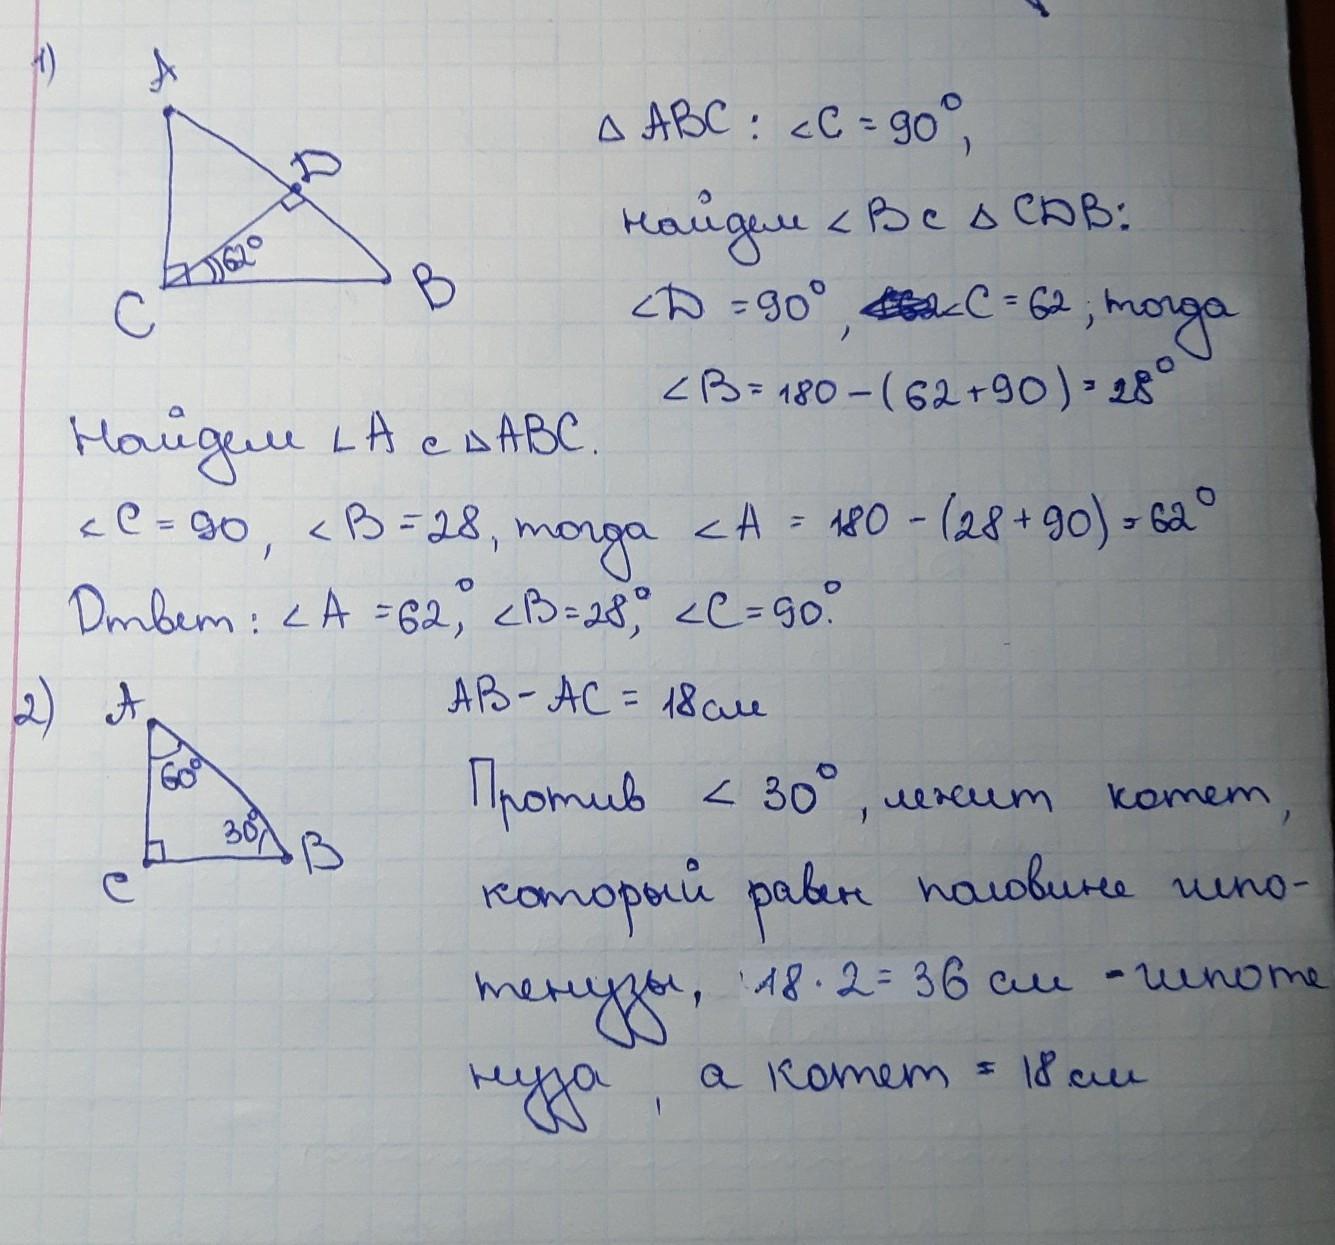 1)
A
D
62°
C
B
△ ABC : ∠C = 90°,
найдем ∠B с △ CDB:
∠D = 90°, ∠C = 62, тогда
∠B = 180 - (62 + 90) = 28°
Найдем ∠A с △ ABC.
∠C = 90, ∠B = 28, тогда ∠A = 180 - (28 + 90) = 62°
Ответ: ∠A = 62°, ∠B = 28°, ∠C = 90°.
2)
A
60°
30°
C
B
AB - AC = 18 см
Против ∠ 30°, лежит катет,
который равен половине гипо-
тенузы, 18 · 2 = 36 см - гипоте
нуза, а катет = 18 см